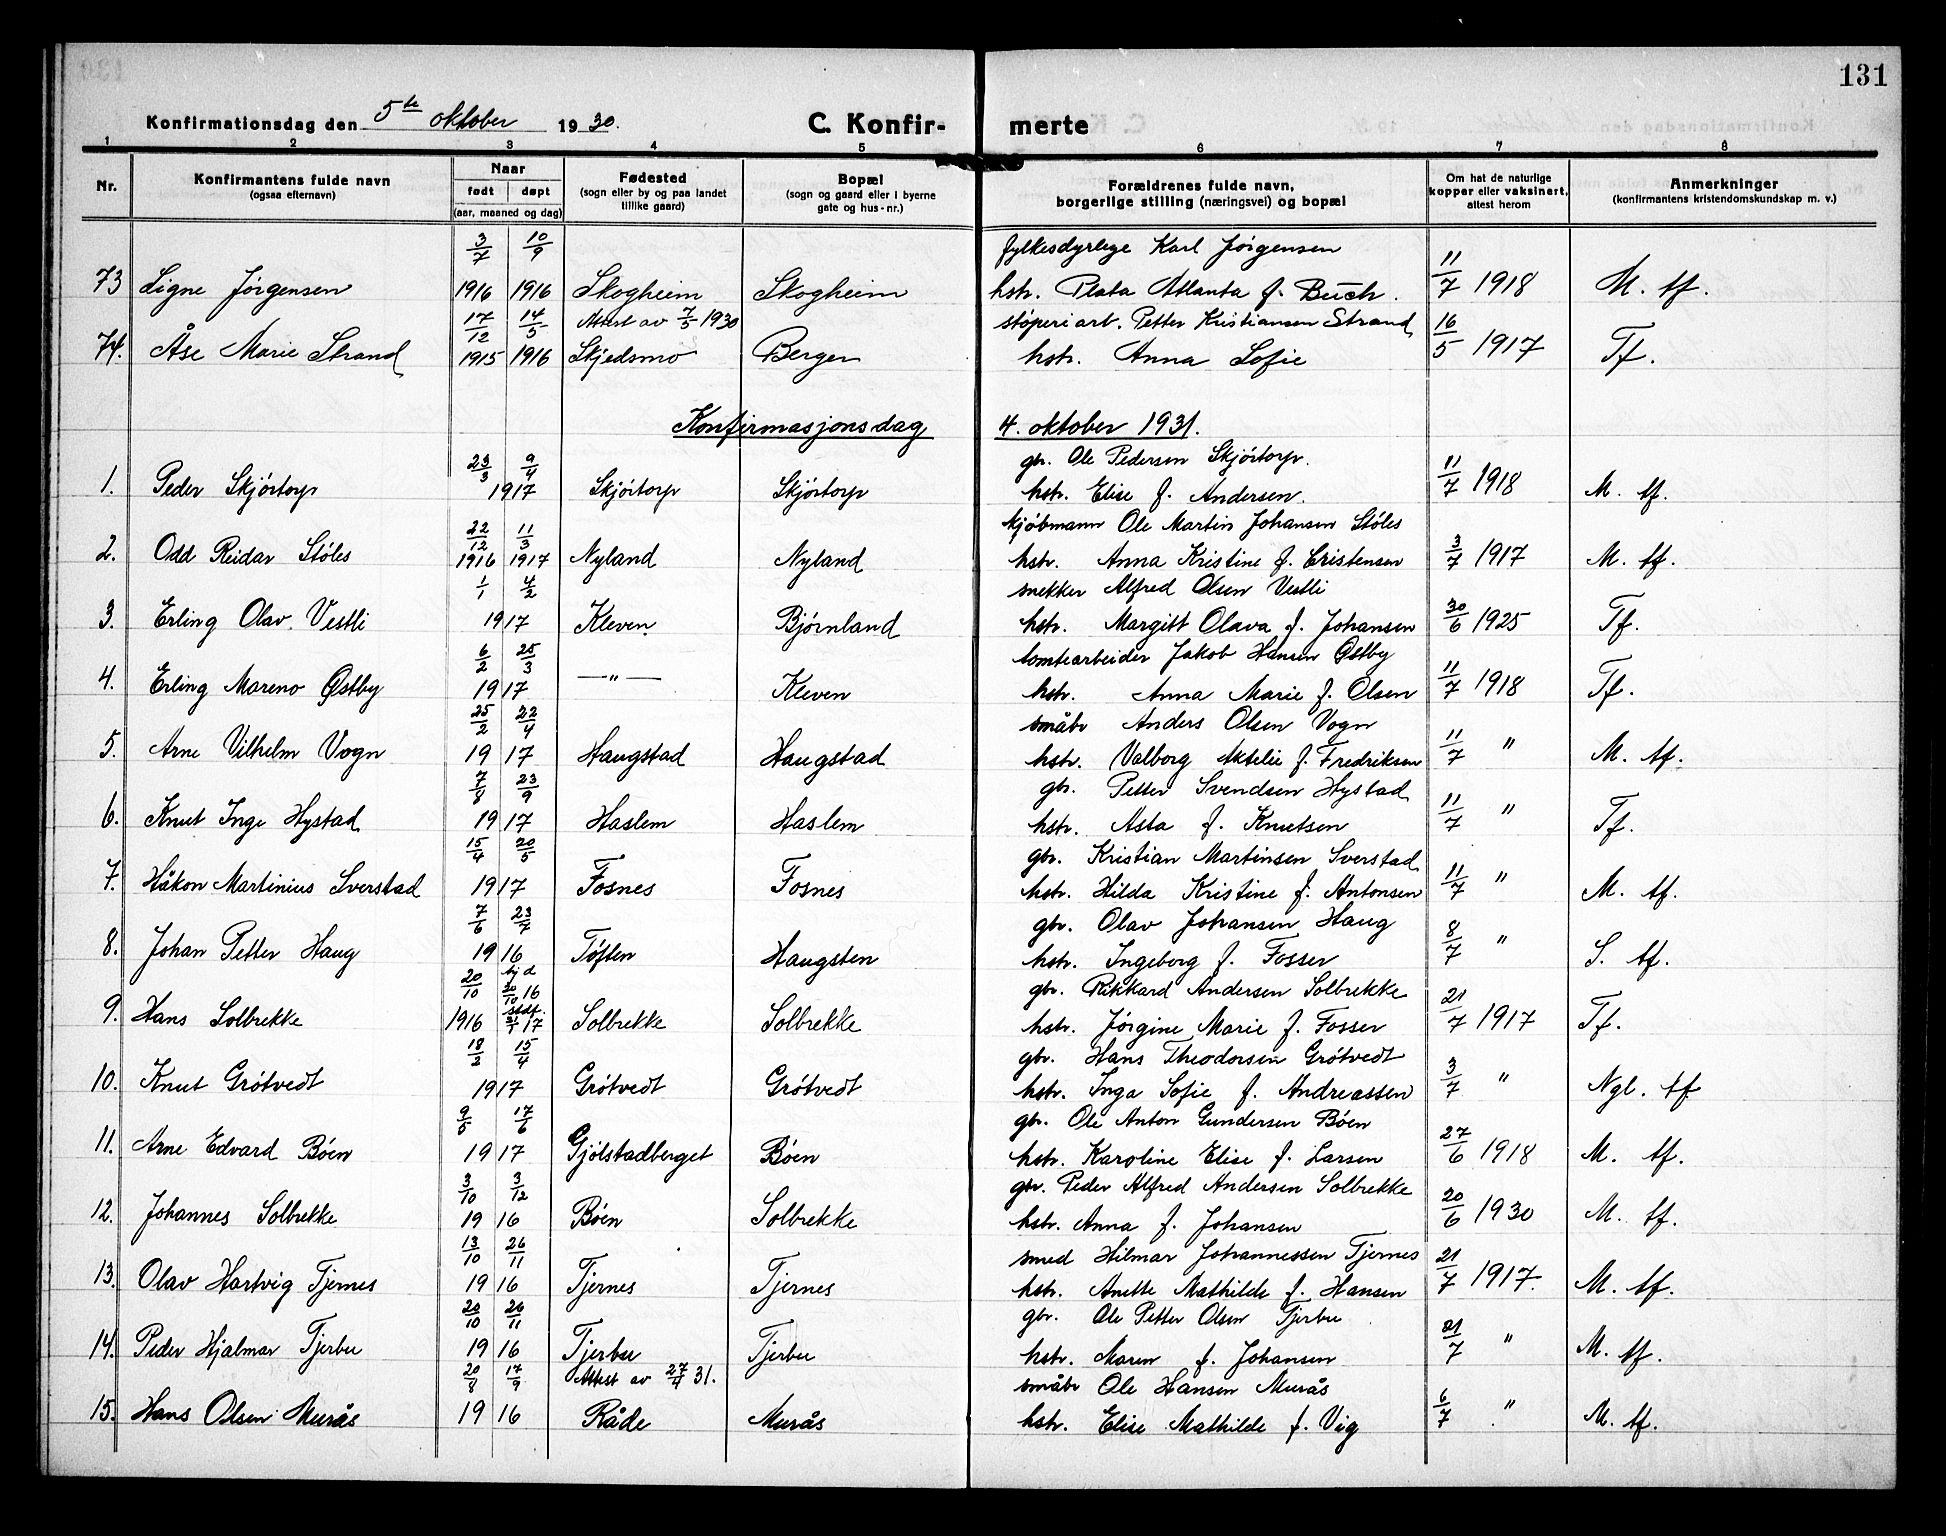 131
Konfirmationsdag den 5te oktober 1930.
C. Konfir- merte
1 2 3 4 5 6 7 8
Nr.
Konfirmantens fulde navn
(ogsaa efternavn)
Naar
født døpt
(aar, maaned og dag)
Fødested
(sogn eller by og paa landet
tillike gaard)
Bopæl
(sogn og gaard eller i byerne
gate og hus-nr.)
Forældrenes fulde navn,
borgerlige stilling (næringsvei) og bopæl
Om hat de naturlige
kopper eller vaksinert,
attest herom
Anmerkninger
(konfirmantens kristendomskundskap m. v.)
3/7 10/9 fylkesdyrlege Karl Jørgensen
73 Signe Jörgensen 1916 1916 Skogheim Skogheim hstr. Plata Atlanta f. Buch. 11/7 1918 M. tf.
17/12 14/5 Attest av 7/5 1930 støperiarb. Petter Kristiansen Strand
74. Åse Marie Strand 1915 1916 Skjedsmo Berger hstr. Anna Sofie 16/5 1917 Tf.
Konfirmasjonsdag 4. oktober 1931.
23/3 9/4 gbr. Ole Pedersen Skjörtorp.
1. Peder Skjörtorp 1917 Skjörtorp Skjörtorp hstr. Elise f. Andersen. 11/7 1918 M. tf.
22/12 11/3 kjöbmann Ole Martin Johansen Stöles
2. Odd Reidar Stöles 1916 1917 Nyland Nyland hstr. Anna Kristine f. Cristensen 3/7 1917 M. tf.
1/1 4/2 snekker Alfred Olsen Vestli
3. Erling Olav Vestli 1917 Kleven Bjørnland hstr. Margitt Olava f. Johansen 30/6 1925 Tf.
6/2 25/3 tomtearbeider Jakob Hansen Østby
4. Erling Mareno Østby 1917 —"— Kleven hstr. Anna Marie f. Olsen 11/7 1918 Tf.
25/2 22/4 småbr Anders Olsen Vogn
5. Arne Vilhelm Vogn 1917 Haugstad Haugstad hstr. Valborg Mktelie f. Fredriksen 11/7 " M. tf.
7/8 23/9 gbr. Petter Svendsen Hystad
6. Knut Inge Hystad 1917 Haslem Haslem hstr. Asta f. Knutsen 11/7 " Tf.
15/4 20/5 gbr. Kristian Martinsen Sverstad
7. Håkon Martinius Sverstad 1917 Fosnes Fosnes hstr. Hilda Kristine f. Antonsen 11/7 " M. tf.
7/6 23/7 gbr. Olav Johansen Haug
8. Johan Petter Haug 1916 Töften Haugsten hstr. Ingeborg f. Fosser 8/7 " S. tf.
20/10 hjd 30/10 16 gbr. Rikkard Andersen Solbrekke
9. Hans Solbrekke 1916 stdf. 17 Solbrekke Solbrekke hstr. Jörgine Marie f. Fosser 21/7 1917 Tf.
18/2 15/4 gbr. Hans Theodorsen Grötvedt
10. Knut Grötvedt 1917 Grötvedt Grötvedt hstr. Inga Sofie f. Andreassen 3/7 " Ngl. tf
9/5 17/6 gbr. Ole Anton Gundersen Böen
11. Arne Edvard Böen 1917 Gjölstadberget Böen hstr. Karoline Elise f. Larsen 27/6 1918 M. tf.
3/10 3/12 gbr. Peder Alfred Andersen Solbrekke
12. Johannes Solbrekke 1916 Böen Solbrekke hstr. Anna f. Johansen 20/6 1930 M. tf.
13/10 26/11 smed Hilmar Johannessen Tjernes
13. Olav Hartvig Tjernes 1916 Tjernes Tjernes hstr. Anette Mathilde f. Hansen 21/7 1917. M. tf.
20/10 26/11 gbr. Ole Petter Olsen Tjerbu
14. Peder Hjalmar Tjerbu 1916 Tjerbu Tjerbu hstr. Maren f. Johansen 21/7 " M. tf.
20/8 17/9 Attest av 27/4 31. småbr Ole Hansen Murås
15. Hans Olsen Murås 1916 Råde Murås hstr. Elise Mathilde f. Vig 6/7 " M. tf.